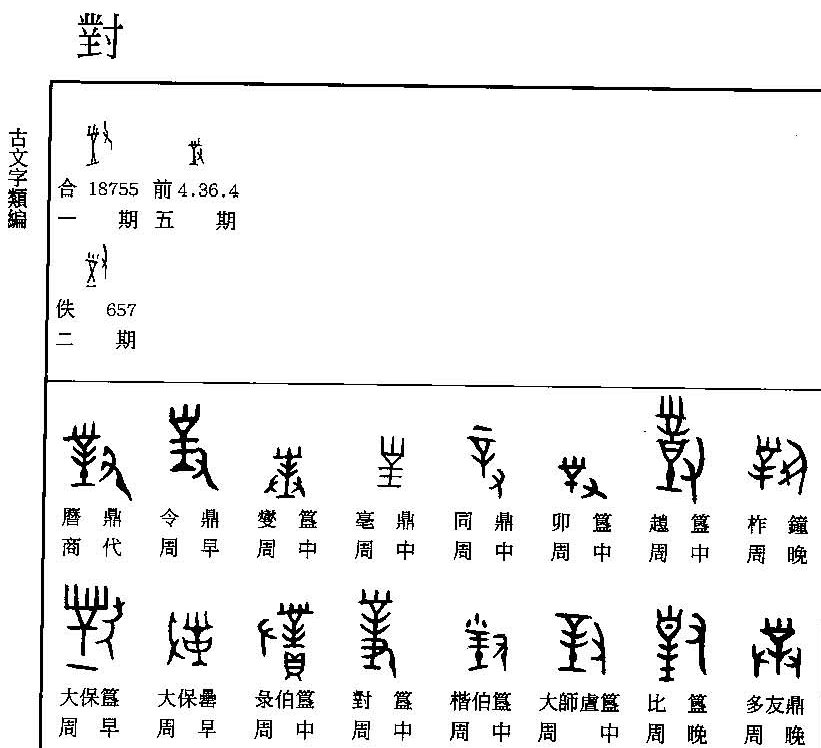 對
古文字類編
合 18755 前 4.36.4
一 期 五 期
佚 657
二 期
曆 鼎 令 鼎 燮 簋 亳 鼎 同 鼎 卯 簋 趞 簋 柞 鐘
商 代 周 早 周 中 周 中 周 中 周 中 周 中 周 晚
大保簋 大保罍 彔伯簋 對 簋 楷伯簋 大師虘簋 比 簋 多友鼎
周 早 周 早 周 中 周 中 周 中 周 中 周 晚 周 晚